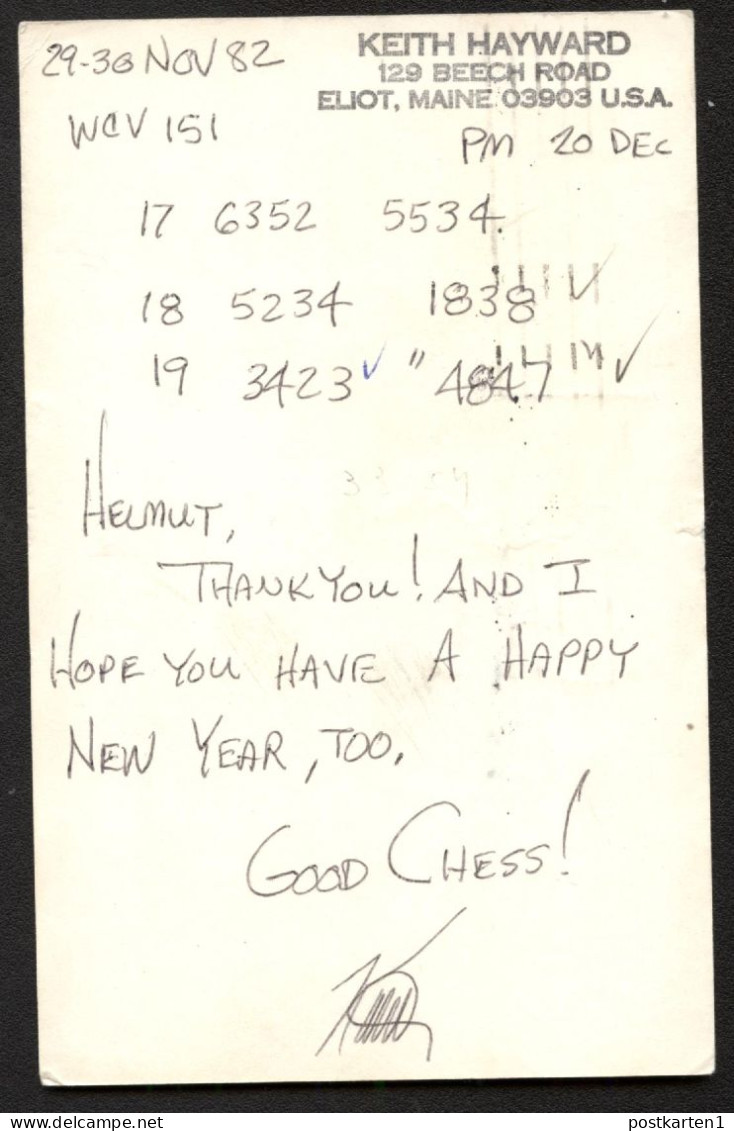 29-30 NOV 82
KEITH HAYWARD
129 BEECH ROAD
ELIOT, MAINE 03903 U.S.A.
WCV 151
PM 20 DEC
17 6352 5534.
18 5234 1838 ✓
19 3423 ✓ " 4847 ✓
HELMUT,
THANK YOU! AND I
HOPE YOU HAVE A HAPPY
NEW YEAR, TOO.
GOOD CHESS!
postkarten1